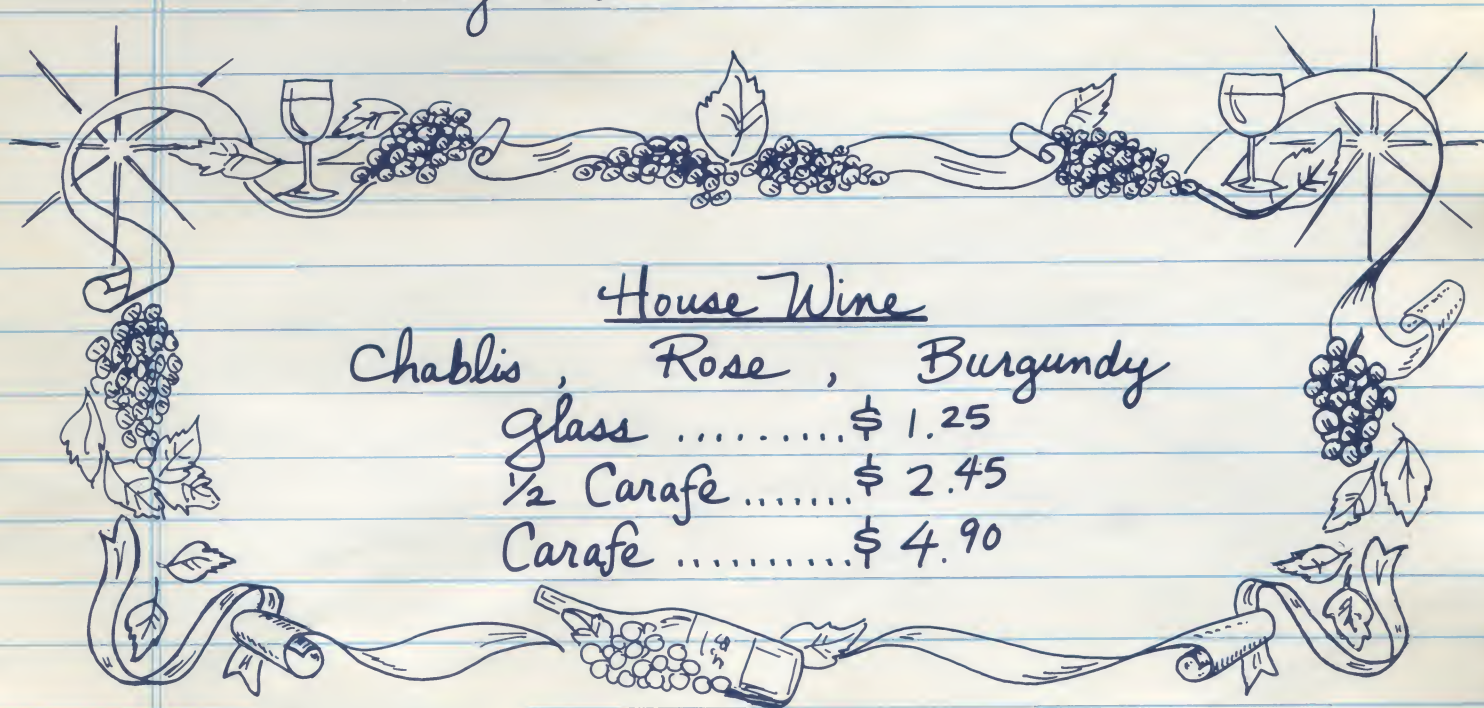 House Wine
Chablis, Rose, Burgundy
Glass .......... $ 1.25
1/2 Carafe ....... $ 2.45
Carafe .......... $ 4.90